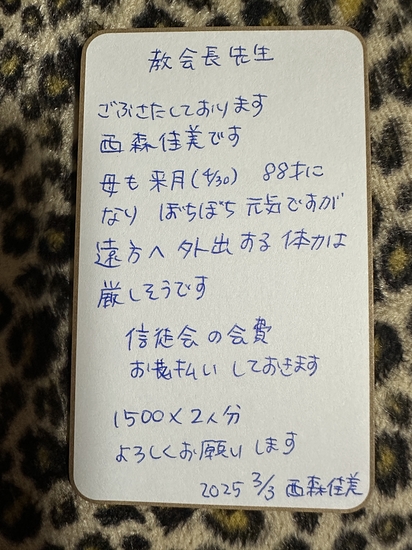 教会長先生
ごぶさたしております
西森佳美です
母も来月(4/30) 88才に
なり ぼちぼち元気ですが
遠方へ外出する体力は
厳しそうです
信徒会の会費
お支払いしておきます
1500×2人分
よろしくお願いします
2025 3/3 西森佳美